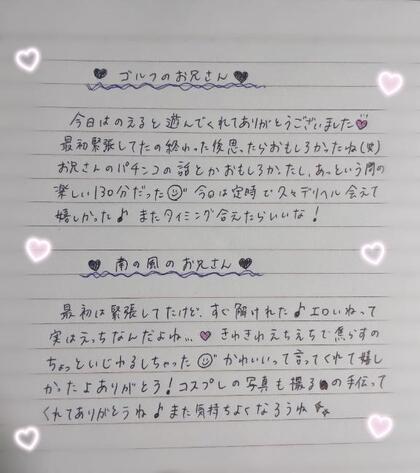 ♥ ゴルフのお兄さん ♥
今日はのえると遊んでくれてありがとうございました♥
最初緊張してたの終わった後思ったらおもしろかったね(笑)
お兄さんのパチンコの話とかおもしろかったし、あっという間の
楽しい130分だった☺ 今日は定時で久々デリヘル会えて
嬉しかった♪ またタイミング合えたらいいな!
♥ 南の風のお兄さん ♥
最初は緊張してたけど、すぐ解けれた♪エロいねって
実はえっちなんだよね…♥ きわきわえちえちで焦らすの
ちょっといじわるしちゃった☺ かわいいって言ってくれて嬉し
かったよありがとう!コスプレの写真も撮るの手伝って
くれてありがとうね♪また気持ちよくなろうね